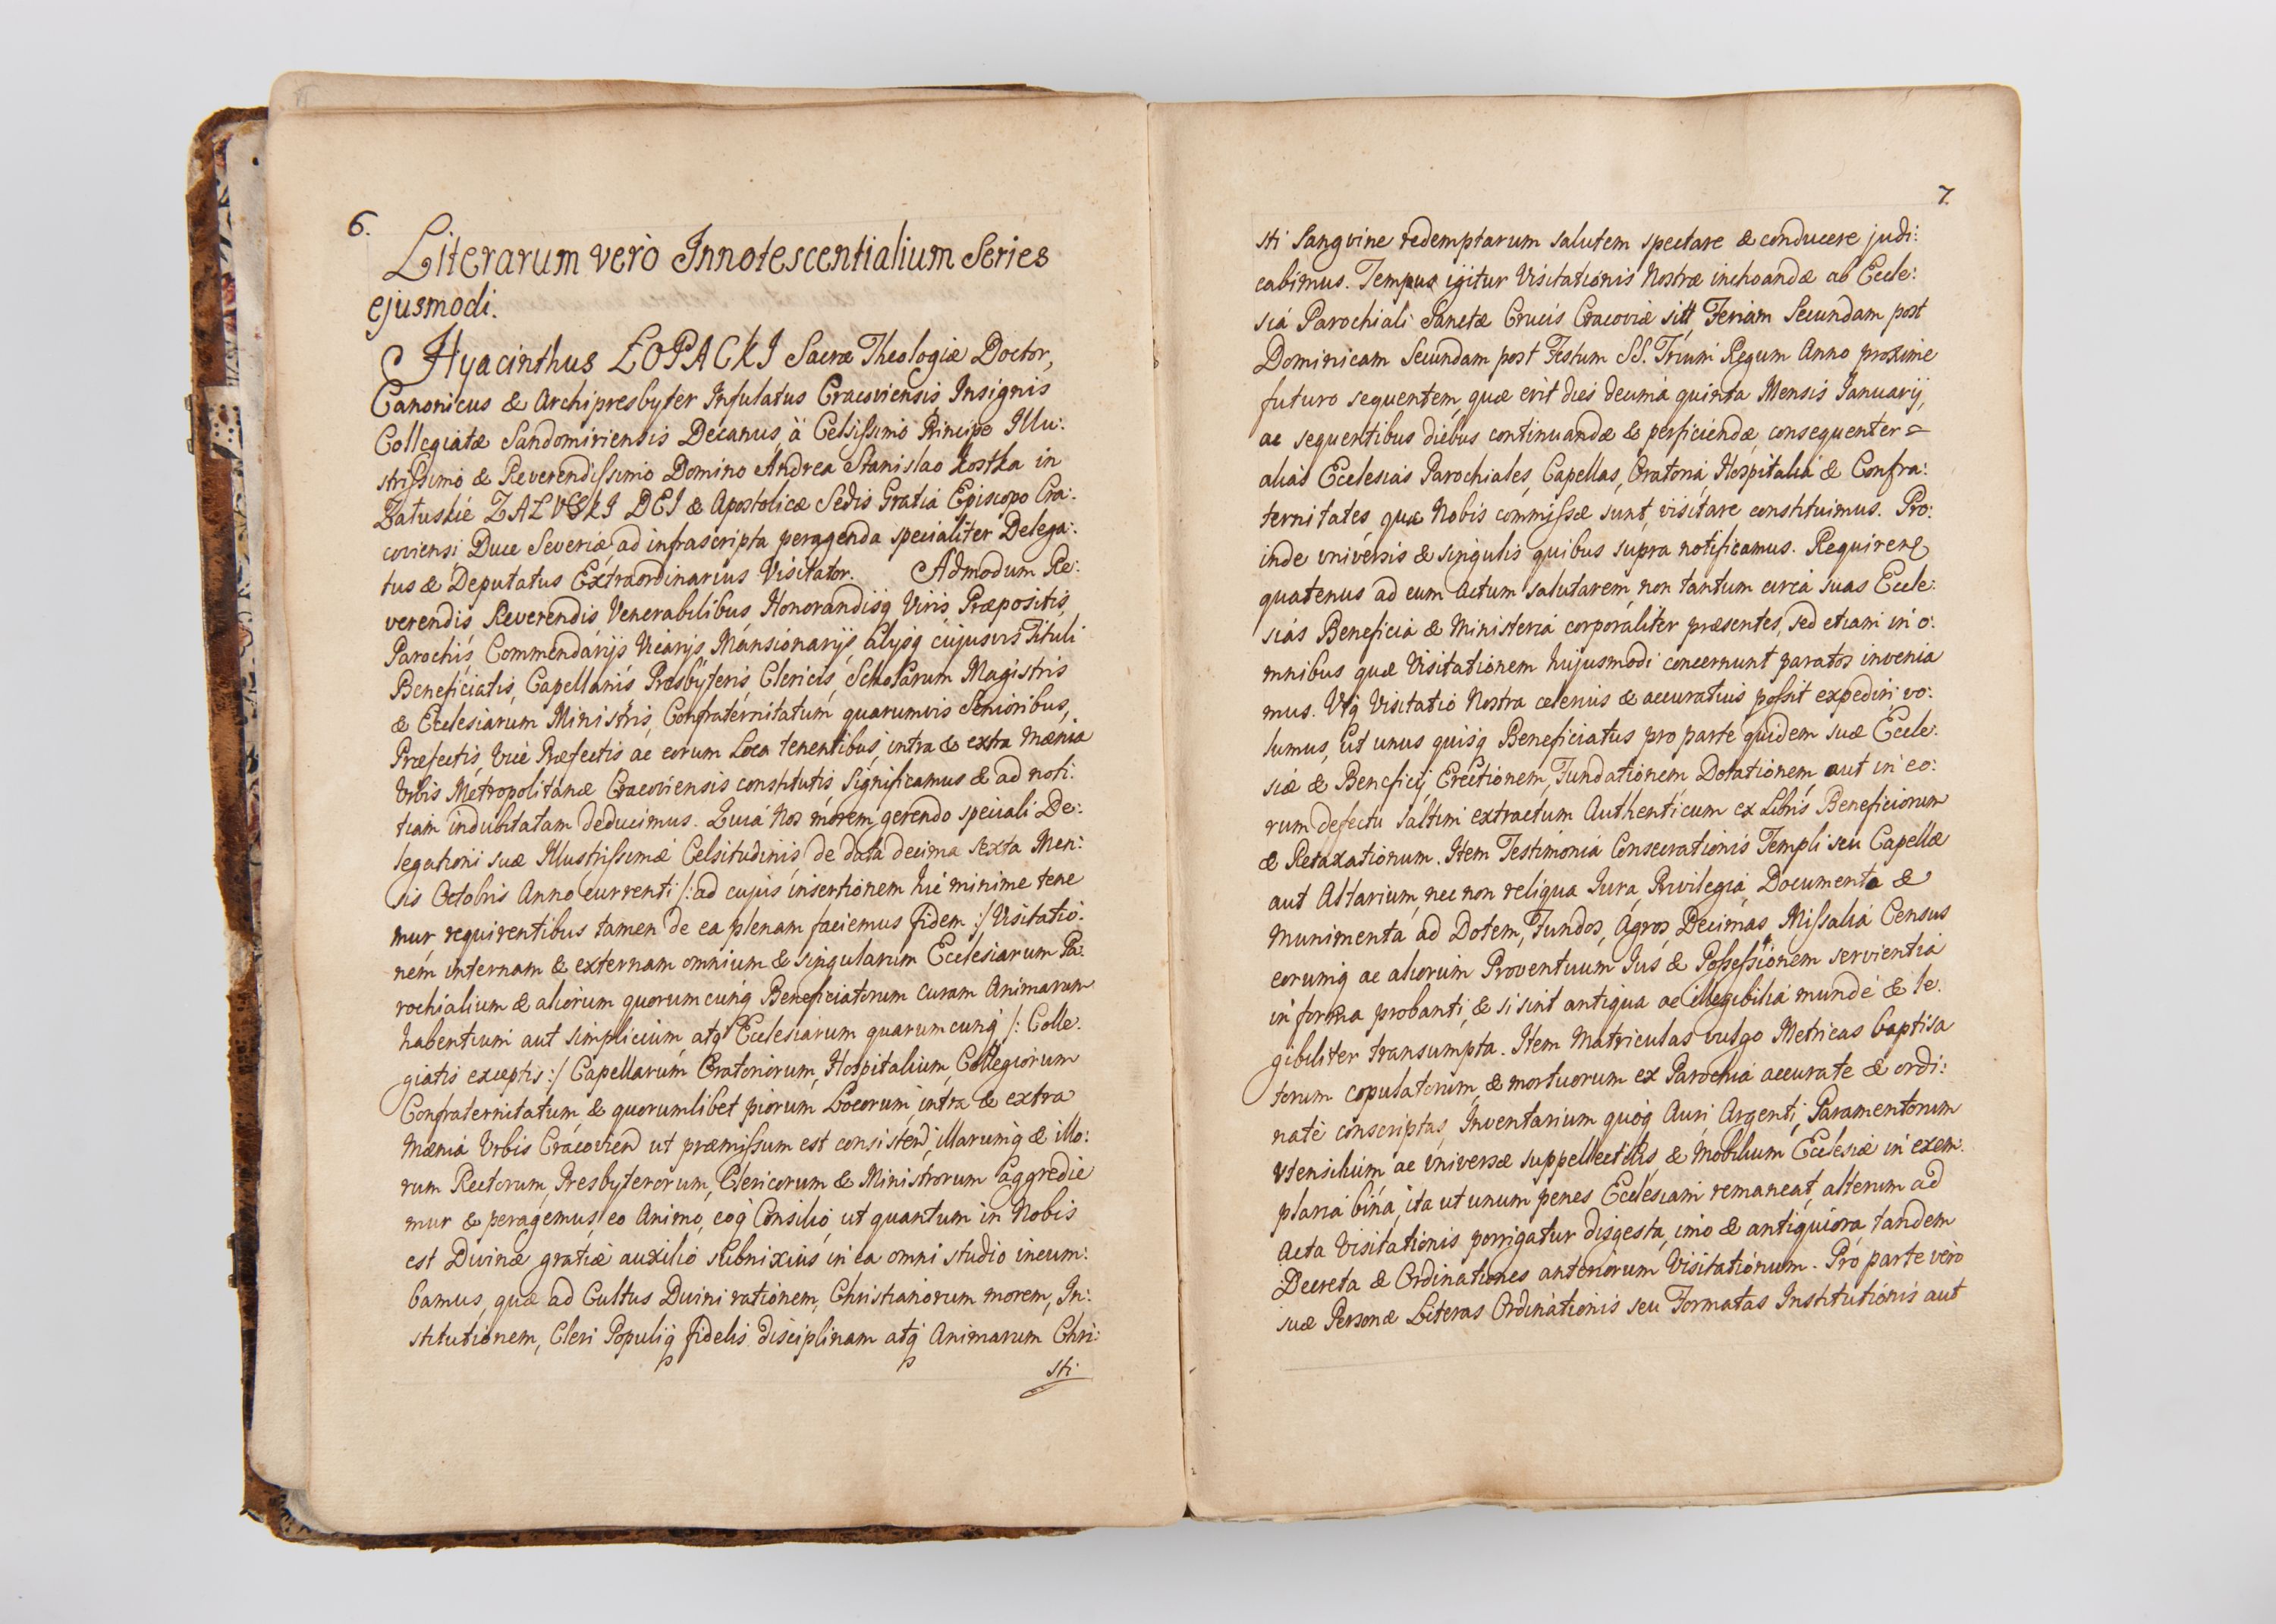 6.
Literarum verò Innotescentialium Series
ejusmodi.
Hyacinthus ŁOPACKI Sacræ Theologiæ Doctor,
Canonicus & Archipresbyter Infulatus Cracoviensis Insignis
Collegiatæ Sandomiriensis Decanus, à Celsissimo Principe Illu:
strissimo & Reverendissimo Domino Andrea Stanislao Kostka in
Załuskie ZALUSKI DEI & Apostolicæ Sedis Gratia Episcopo Cra:
coviensi Duce Severiæ, ad infrascripta peragenda specialiter Delega:
tus & Deputatus Extraordinarius Visitator. Admodum Re:
verendis Reverendis Venerabilibus, Honorandisq Viris, Præpositis,
Parochis, Commendarijs Vicarijs, Mansionarijs, alijsq cujusvis Tituli
Beneficiatis, Capellanis Præsbyteris Clericis, Scholarum Magistris
& Ecclesiarum Ministris, Confraternitatum quarumvis Senioribus,
Præfectis, Vice Præfectis ac eorum Loca tenentibus, intra & extra Mænia
Urbis Metropolitanæ Cracoviensis constitutis, Significamus & ad noti:
tiam indubitatam deducimus. Quia Nos morem gerendo speciali De:
legationi suæ Illustrissimæ Celsitudinis de data decima sexta Men:
sis Octobris Anno currenti /: ad cujus insertionem hic minime tene
mur requirentibus tamen de ea plenam faciemus fidem :/ Visitatio:
nem internam & externam omnium & singularum Ecclesiarum Pa:
rochialium & aliorum quorumcunq Beneficiatorum curam Animarum
habentium aut simplicium atq Ecclesiarum quarumcunq /: Colle:
giatis exceptis :/ Capellarum Oratoriorum, Hospitalium, Collegiorum
Confraternitatum, & quorumlibet piorum Locorum, intra & extra
Mænia Urbis Cracovien ut præmissum est consisten, illarumq & illo:
rum Rectorum, Presbyterorum, Clericorum & Ministrorum aggredie
mur & peragemus, eo Animo, eoq Consilio, ut quantum in Nobis
est Divinæ gratiæ auxilio subnixius in ea omni studio incum:
bamus, quæ ad Cultus Divini rationem, Christianorum morem, In:
stitutionem, Cleri Populiq fidelis disciplinam atq Animarum Chri:
sti
7.
sti Sangvine redemptarum salutem spectare & conducere judi:
cabimus. Tempus igitur Visitationis Nostræ inchoandæ ab Eccle:
sia Parochiali Sanctæ Crucis Cracoviæ sitt, Feriam Secundam post
Dominicam Secundam post Festum SS. Trium Regum Anno proxime
futuro sequentem, quæ erit dies decima quinta Mensis Januarij,
ac sequentibus diebus continuandæ & perficiendæ, consequenter =
alias Ecclesias Parochiales, Capellas, Oratoria, Hospitalia & Confra:
ternitates, quæ Nobis commissæ sunt, visitare constituimus. Pro:
inde universis & singulis quibus supra notificamus. Requiren
quatenus ad eum Actum salutarem, non tantum circa suas Eccle:
sias Beneficia & Ministeria corporaliter præsentes, sed etiam in o:
mnibus quæ Visitationem hujusmodi concernunt paratos invenia
mus. Utq Visitatio Nostra celerius & accuratius possit expediri, vo:
lumus, ut unus quisq Beneficiatus pro parte quidem suæ Eccle:
siæ & Beneficij, Erectionem, Fundationem Dotationem, aut in eo:
rum defectu saltim extractum Authenticum ex Libris Beneficiorum
& Retaxationum. Item Testimonia Consecrationis Templi seu Capellæ
aut Altarium, nec non reliqua Jura, Privilegia, Documenta &
Munimenta ad Dotem, Fundos, Agros, Decimas, Missalia Census
eorumq ac aliorum Proventuum Jus & Possessionem servientia
in forma probanti, & si sint antiqua ac illegibilia munde & le:
gibiliter transumpta. Item Matriculas vulgo Metricas baptisa
torum copulatorum, & mortuorum ex Parochia accurate & ordi:
natè conscriptas, Inventarium quoq Auri, Argenti, Paramentorum
Utensilium, ac universæ suppellectilis, & Mobilium Ecclesiæ in exem:
plaria bina, ita ut unum penes Ecclesiam remaneat, alterum ad
Acta Visitationis porrigatur disgesta, imo & antiquiora, tandem
Decreta & Ordinationes anteriorum Visitationum. Pro parte verò
suæ Personæ Literas Ordinationis seu Formatas Institutionis aut